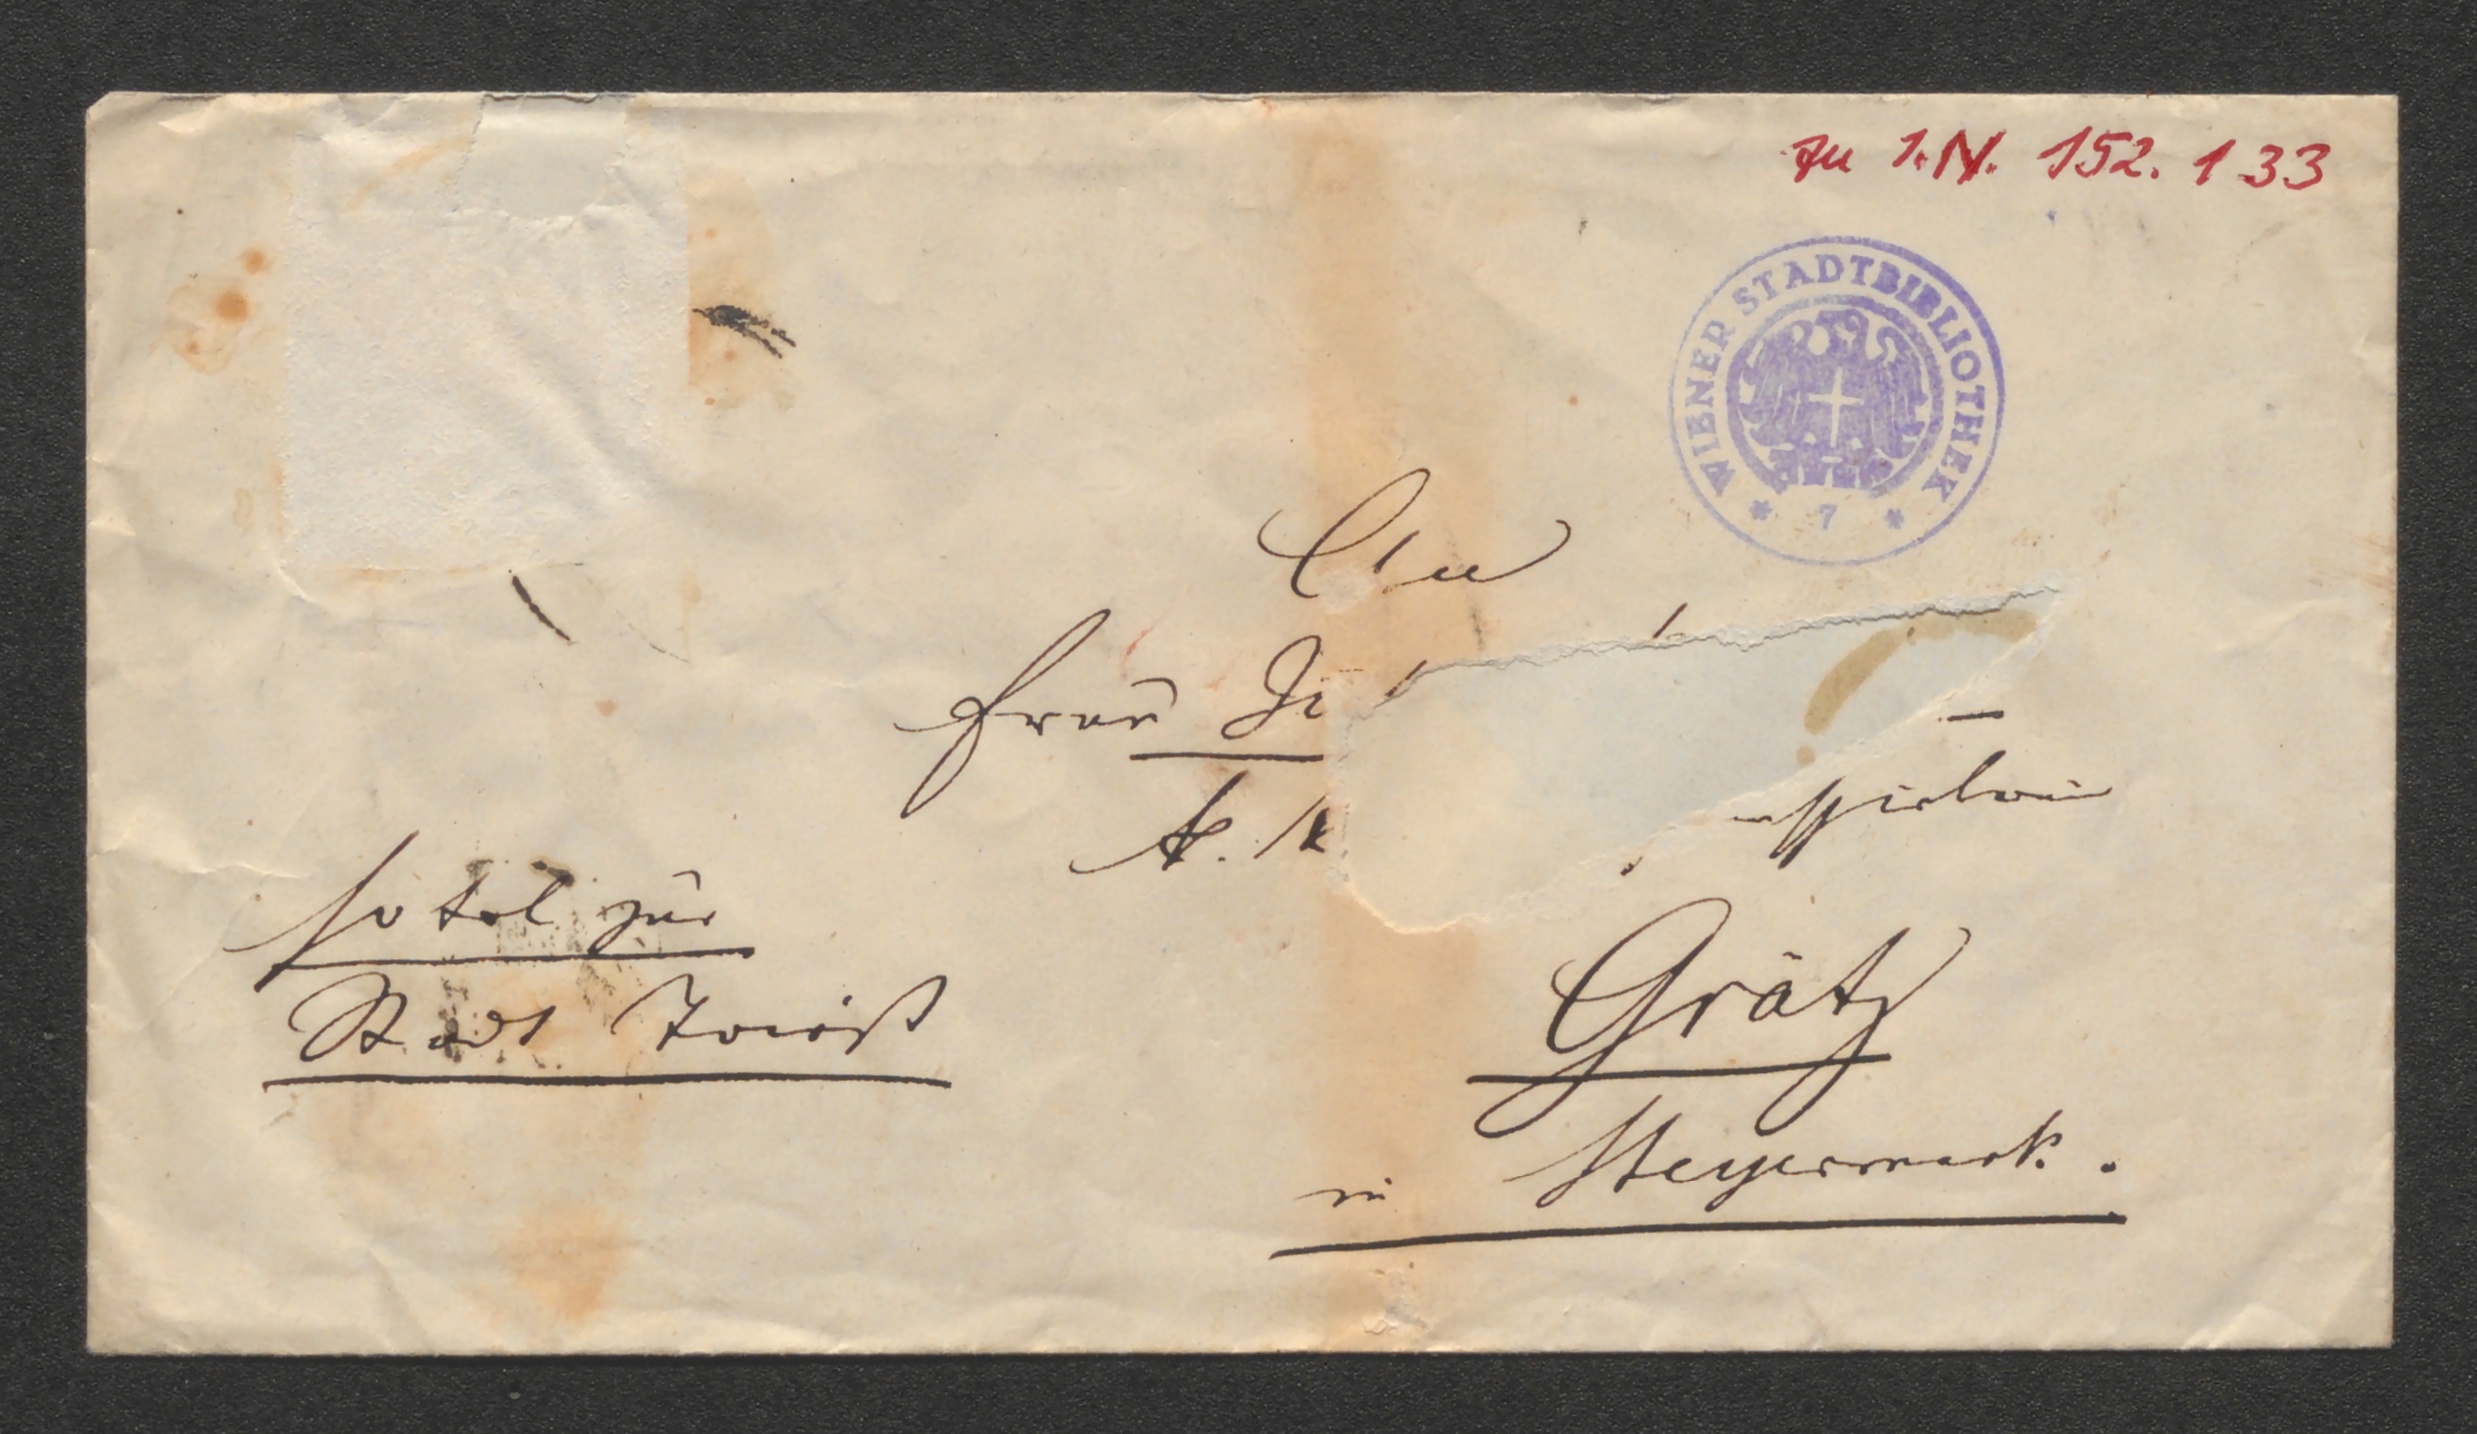 zu I.N. 152.133
WIENER STADTBIBLIOTHEK
* 7 *
An
Frau
k. k
Hotel zur
Stadt Triest
Grätz
in Steyermark.